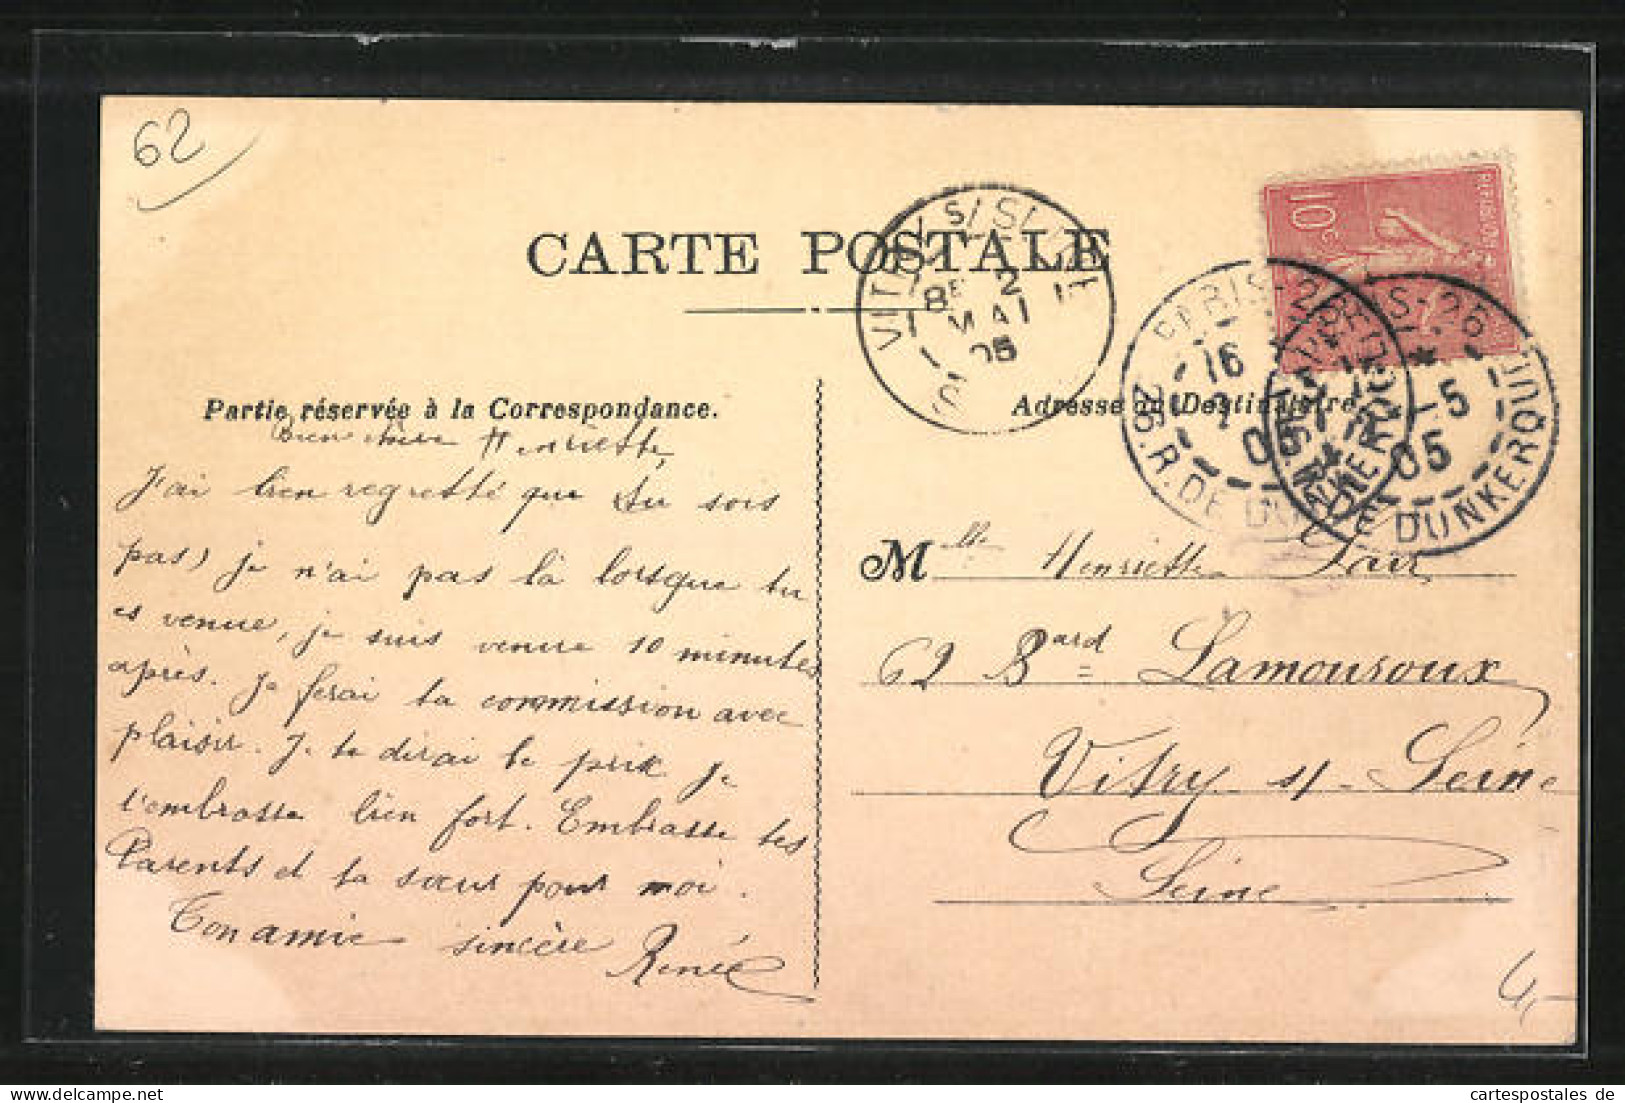 62
CARTE POSTALE
VITRY S/ SEINE
8E 2
MAI
05
10c
PARIS-26
16
05
26.R.DE DUNKERQUE
PARIS-26
5
05
R.DE DUNKERQUE
Partie réservée à la Correspondance.
Adresse du Destinataire
Bien chère Henriette,
J'ai bien regretté que tu sois
pas) je n'ai pas là lorsque tu
es venue, je suis venue 10 minutes
après. Je ferai ta commission avec
plaisir. Je te dirai le prix je
t'embrasse bien fort. Embrasse tes
Parents et ta sœur pour moi.
Ton amie sincère Renée
Mlle Henriette
62 Bard Lamouroux
Vitry s/ Seine
Seine
4,-
cartespostales de